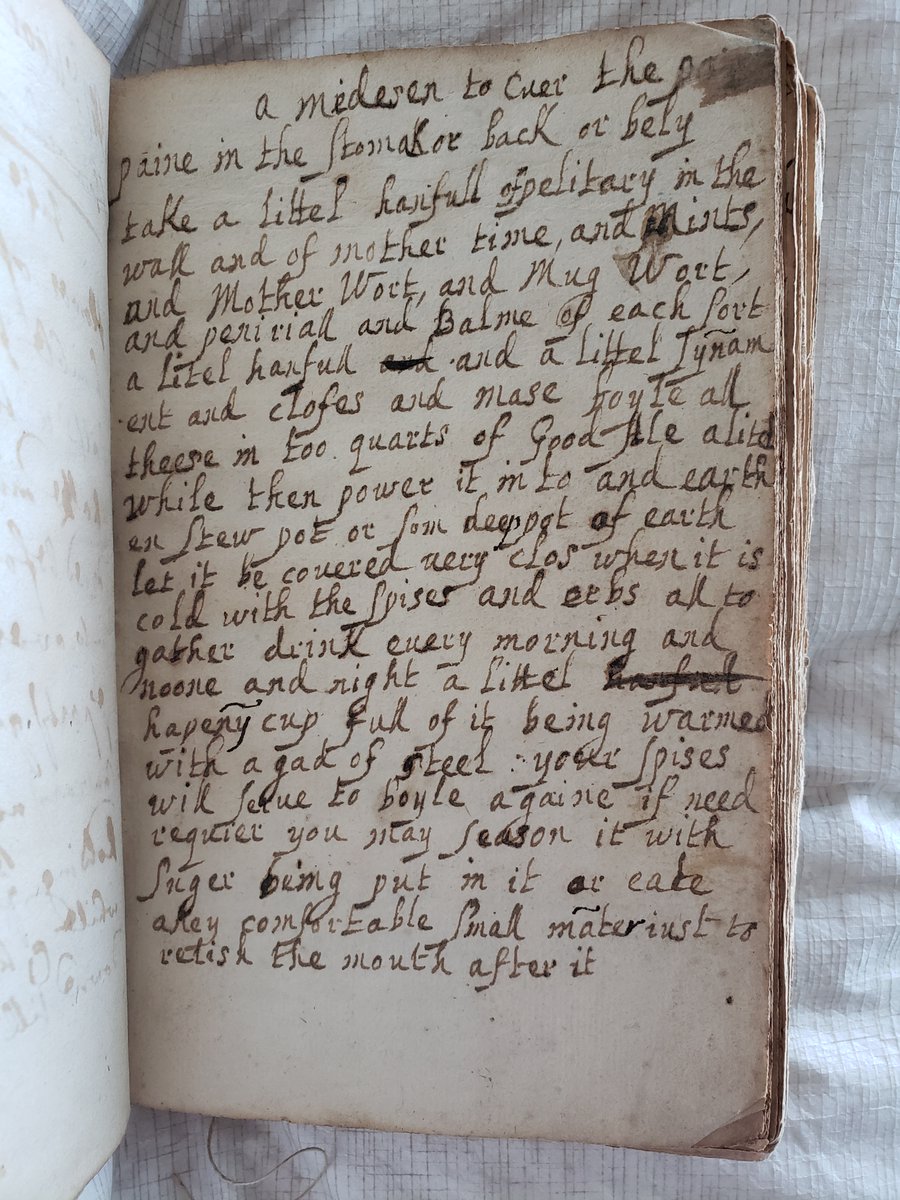 a medesen to cuer the
paine in the stomak or back or bely
take a littel hanfull of pelitary in the
wall and of mother time, and Mints,
and Mother Wort, and Mug Wort,
and peniriall and Balme of each sort
a litel hanfull and and a littel synam
ent and clofes and mase boyle all
theese in too quarts of Good Ale a litel
while then power it in to and earth
en stew pot or som deep pot of earth
let it be covered very clos when it is
cold with the spises and erbs all to
gather drink every morning and
noone and night a littel hanfull
hapeny cup full of it being warmed
with a gad of steel your spises
will serve to boyle againe if need
requier you may season it with
suger being put in it or eate
aney comfortable small mater iust to
relish the mouth after it